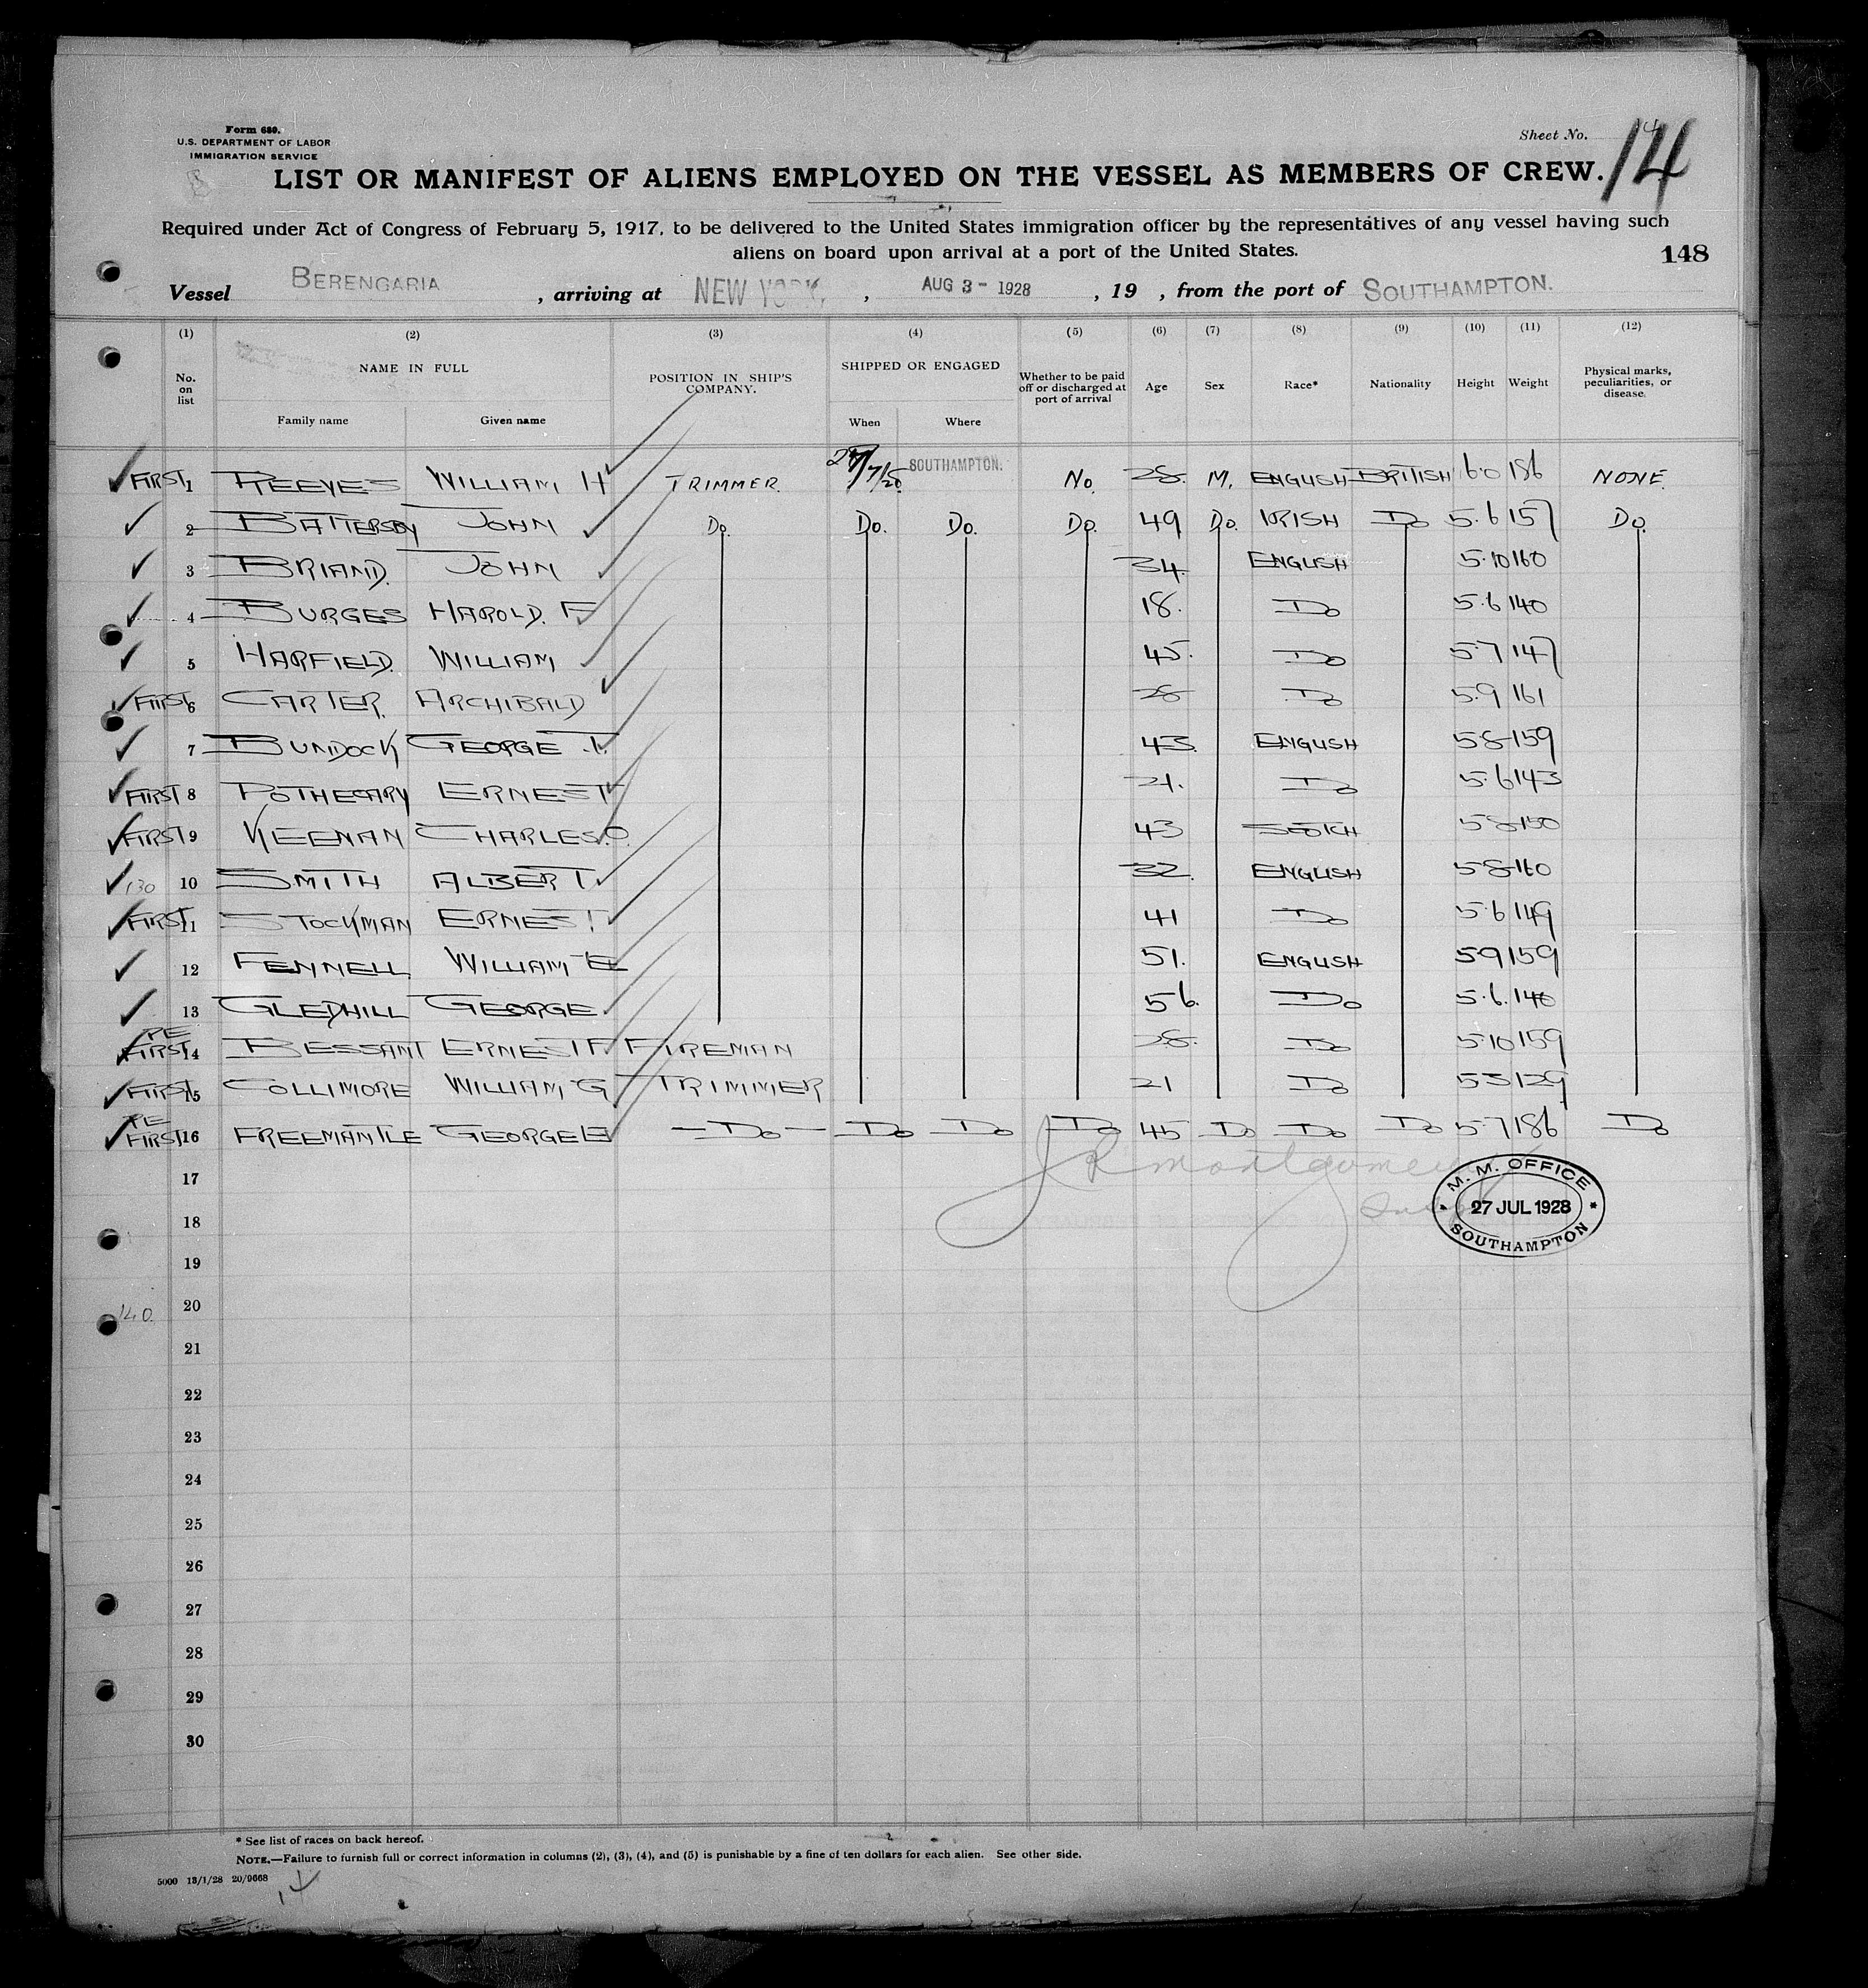 Form 680.
U.S. DEPARTMENT OF LABOR
IMMIGRATION SERVICE
Sheet No. 14
LIST OR MANIFEST OF ALIENS EMPLOYED ON THE VESSEL AS MEMBERS OF CREW.
Required under Act of Congress of February 5, 1917, to be delivered to the United States immigration officer by the representatives of any vessel having such
aliens on board upon arrival at a port of the United States.
148
Vessel BERENGARIA , arriving at NEW YORK, , AUG 3 - 1928 , 19 , from the port of SOUTHAMPTON.
(1) (2) (3) (4) (5) (6) (7) (8) (9) (10) (11) (12)
No. on list NAME IN FULL Family name Given name POSITION IN SHIP'S COMPANY. SHIPPED OR ENGAGED When Where Whether to be paid off or discharged at port of arrival Age Sex Race* Nationality Height Weight Physical marks, peculiarities, or disease.
FIRST 1 REEVES WILLIAM H TRIMMER. SOUTHAMPTON. No. 28. M. ENGLISH BRITISH 6.0 186 NONE.
2 BATTERSBY JOHN Do. Do. Do. Do. 49 Do. IRISH Do 5.6 157 Do.
3 BRIAND. JOHN 34. ENGLISH 5.10 160
4 BURGES HAROLD. F 18. Do 5.6 140
5 HARFIELD. WILLIAM 45. Do 5.7 147
FIRST 6 CARTER. ARCHIBALD 28 Do 5.9 161
7 BUNDOCK GEORGE T. 43. ENGLISH 5.8 159
FIRST 8 POTHECARY ERNEST 21. Do 5.6 143
FIRST 9 KEENAN CHARLES.O. 43 SCOTCH 5.8 150
130 10 SMITH ALBERT. 32. ENGLISH 5.8 160
FIRST 11 STOCKMAN ERNEST 41 Do 5.6 149
12 FENNELL WILLIAM E 51. ENGLISH 5.9 159
13 GLEDHILL GEORGE. 56. Do 5.6. 140
RE FIRST 14 BESSANT ERNEST F. FIREMAN 28. Do 5.10 159
FIRST 15 COLLIMORE WILLIAM G TRIMMER 21 Do 5.3 129
RE FIRST 16 FREEMANTLE GEORGE E - Do - Do Do Do 45 Do Do Do 5.7 186 Do
17
J R Montgomery
M. M. OFFICE
27 JUL 1928
SOUTHAMPTON
18
19
140. 20
21
22
23
24
25
26
27
28
29
30
* See list of races on back hereof.
NOTE.—Failure to furnish full or correct information in columns (2), (3), (4), and (5) is punishable by a fine of ten dollars for each alien. See other side.
5000 13/1/28 20/9668
14